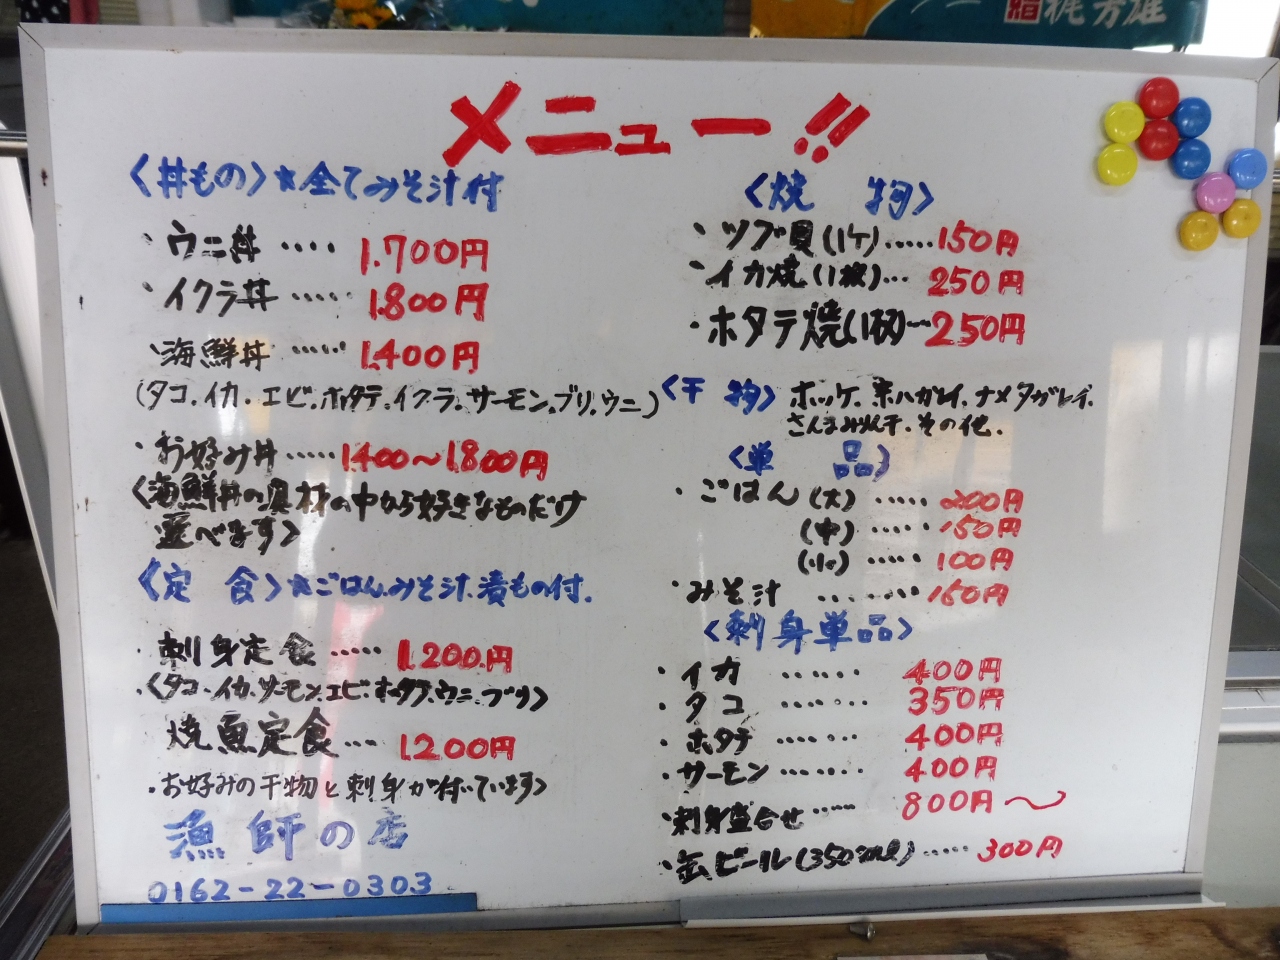 梶芳雄
メニュー!!
〈丼もの〉★全てみそ汁付
・ウニ丼 ‥‥ 1.700円
・イクラ丼 ‥‥‥ 1.800円
・海鮮丼 ‥‥‥ 1.400円
(タコ.イカ.エビ.ホタテ.イクラ.サーモン.ブリ.ウニ)
・お好み丼 ‥‥‥ 1.400〜1.800円
〈海鮮丼の具材の中から好きなものだけ
選べます〉
〈定 食〉★ごはん.みそ汁.漬もの付.
・刺身定食 ‥‥‥ 1.200円
・〈タコ.イカ.サーモン.エビ.ホタテ.ウニ.ブリ〉
焼魚定食 ‥‥ 1.200円
・お好みの干物と刺身が付いています〉
漁師の店
0162-22-0303
〈焼 物〉
・ツブ貝(1ケ)‥‥‥150円
・イカ焼(1枚)‥‥ 250円
・ホタテ焼(1枚)‥‥250円
〈干 物〉 ホッケ.宗八ガレイ.ナメタガレイ.
さんまみりん干.その他.
〈単 品〉
・ごはん (大) ‥‥‥ 200円
(中) ‥‥‥ 150円
(小) ‥‥‥ 100円
・みそ汁 ‥‥‥‥ 150円
〈刺身単品〉
・イカ ‥‥‥‥ 400円
・タコ ‥‥‥‥ 350円
・ホタテ ‥‥‥‥ 400円
・サーモン ‥‥‥‥ 400円
・刺身盛合せ ‥‥‥ 800円〜
・缶ビール(350ml) ‥‥‥ 300円